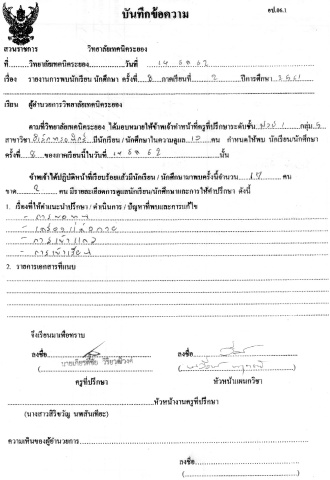 อป.06.1
บันทึกข้อความ
ส่วนราชการ วิทยาลัยเทคนิคระยอง
ที่ วิทยาลัยเทคนิคระยอง วันที่ 14 62
เรื่อง รายงานการพบนักเรียน นักศึกษา ครั้งที่ 8 ภาคเรียนที่ 2 ปีการศึกษา 2561
เรียน ผู้อำนวยการวิทยาลัยเทคนิคระยอง
ตามที่วิทยาลัยเทคนิคระยอง ได้มอบหมายให้ข้าพเจ้าทำหน้าที่ครูที่ปรึกษาระดับชั้น กลุ่ม
สาขาวิชา มีนักเรียน / นักศึกษาในความดูแล คน กำหนดให้พบ นักเรียน/นักศึกษา
ครั้งที่ 8 ของภาคเรียนนี้ในวันที่ 14 62 นั้น
ข้าพเจ้าได้ปฏิบัติหน้าที่เรียบร้อยแล้วมีนักเรียน / นักศึกษามาพบครั้งนี้จำนวน 17 คน
ขาด 2 คน มีรายละเอียดการดูแลนักเรียน/นักศึกษาและการให้คำปรึกษา ดังนี้
1. เรื่องที่ให้คำแนะนำปรึกษา / ดำเนินการ / ปัญหาที่พบและการแก้ไข
- เครื่องแต่งกาย
- การเข้าแถว
- การเข้าเรียน
2. รายการเอกสารที่แนบ
จึงเรียนมาเพื่อทราบ
ลงชื่อ ลงชื่อ
ครูที่ปรึกษา หัวหน้าแผนกวิชา
หัวหน้างานครูที่ปรึกษา
(นางสาวสิริขวัญ นพสันเทียะ)
ความเห็นของผู้อำนวยการ
ลงชื่อ